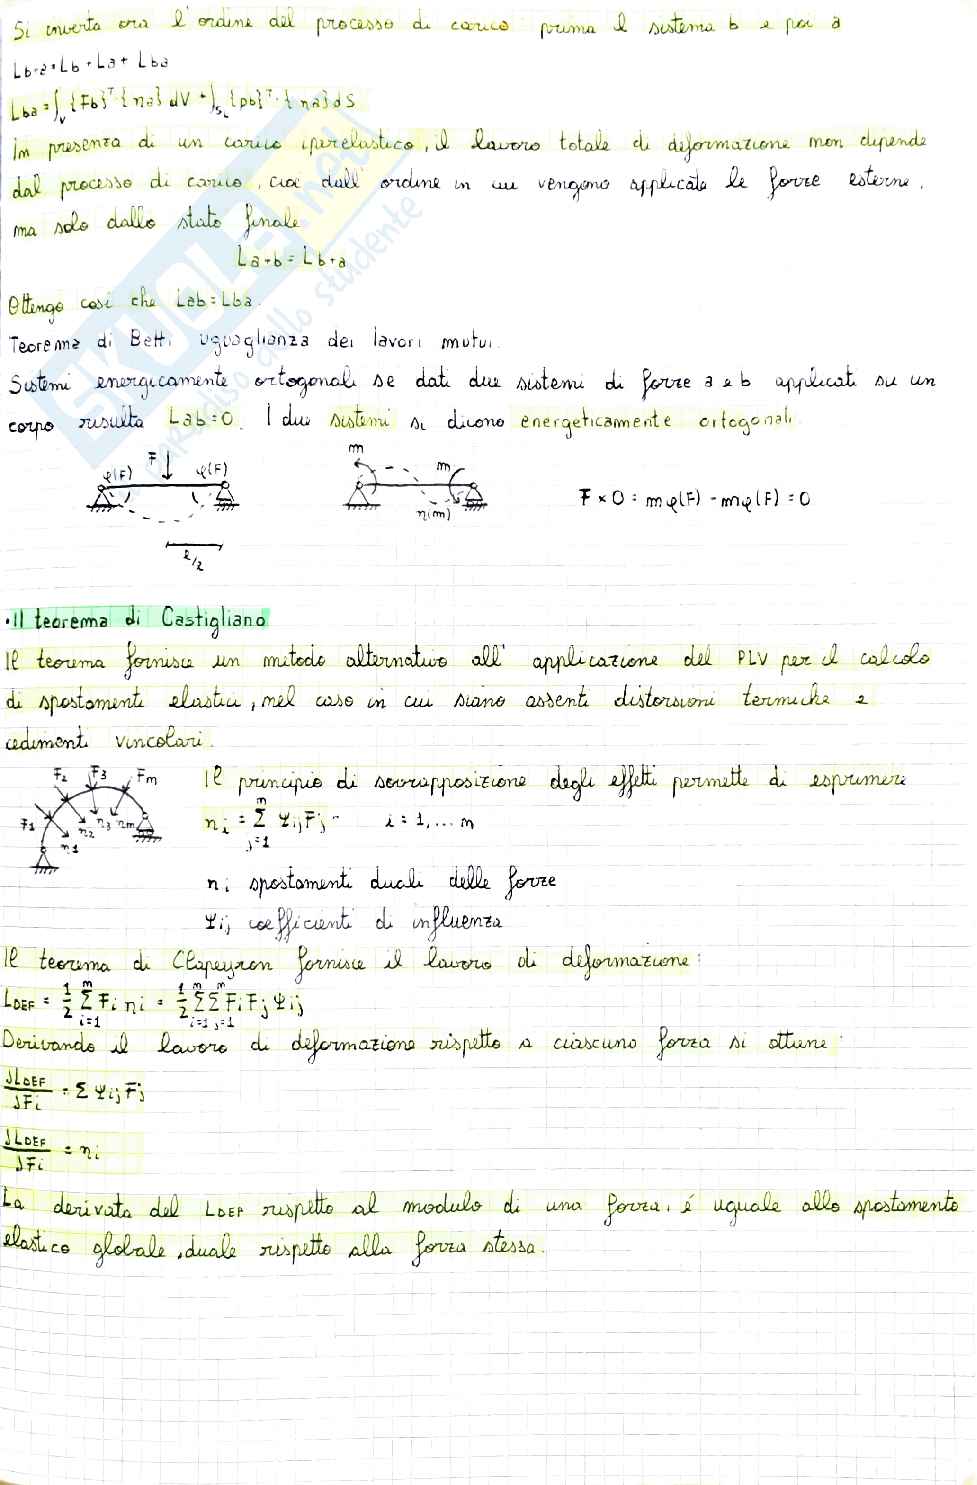 Si inverta ora l'ordine del processo di carico: prima il sistema b e poi a
Lb+a = Lb + La + Lba
Lba = ∫v {Fb}ᵀ · {ηa} dV + ∫SL {pb}ᵀ · {ηa} dS
In presenza di un carico iperelastico, il lavoro totale di deformazione non dipende
dal processo di carico, cioè dall'ordine in cui vengono applicate le forze esterne,
ma solo dallo stato finale
La+b = Lb+a
Ottengo così che Lab = Lba.
Teorema di Betti uguaglianza dei lavori mutui.
Sistemi energicamente ortogonali se dati due sistemi di forze a e b applicati su un
corpo risulta Lab=0. I due sistemi si dicono energeticamente ortogonali.
φ(F) F φ(F)
m m
η(m)
F × 0 = mφ(F) - mφ(F) = 0
l/2
• Il teorema di Castigliano
Il teorema fornisce un metodo alternativo all'applicazione del PLV per il calcolo
di spostamenti elastici, nel caso in cui siano assenti distorsioni termiche e
cedimenti vincolari.
F1 F2 F3 Fm
η1 η2 η3 ηm
Il principio di sovrapposizione degli effetti permette di esprimere
ηi = Σ(j=1, m) Ψij Fj i = 1, ... m
ηi spostamenti duali delle forze
Ψij coefficienti di influenza
Il teorema di Clapeyron fornisce il lavoro di deformazione:
LDEF = 1/2 Σ(i=1, m) Fi ηi = 1/2 Σ(i=1, m) Σ(j=1, m) Fi Fj Ψij
Derivando il lavoro di deformazione rispetto a ciascuno forza si ottiene:
∂LDEF/∂Fi = Σ Ψij Fj
∂LDEF/∂Fi = ηi
La derivata del LDEF rispetto al modulo di una forza, é uguale allo spostamento
elastico globale, duale rispetto alla forza stessa.